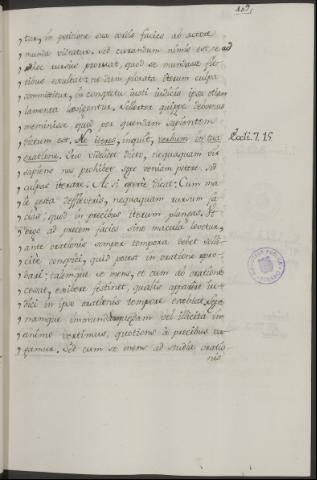 tur, in petitione sua velle facies ab actore
munda vitatur. Sed curandum nimis est, ne ad
hoc rursus proruat, quod se mundasse fle-
tibus exultat: ne dum plorata iterum culpa
committitur, in conspectu iusti iudicis ipsa etiam
lamenta levigentur. Solerter quippe debemus
meminisse quod per quendam sapientem
dictum est, Ne iteres, inquit, verbum in tua
oratione. Quo videlicet dicto, nequaquam vir
sapiens nos prohibet saepe veniam petere, sed
culpas iterare. Ac si aperte dicat: Cum ma-
la gesta defleveris, nequaquam rursum fa-
cias, quod in precibus iterum plangas. Ut
ergo ad precem facies sine macula levetur,
ante orationis semper tempora debet solli-
cite conspici, quid possit in oratione repro-
bari: talemque se mens, et cum ab oratione
cessat, exhibere festinet, qualis apparere iu-
dici in ipso orationis tempore exoptat. Saepe
namque immunda quaedam vel illicita in
animo vertimus, quotiens a precibus va-
camus. Sed cum se mens ad studia oratio-
nis
Eccli. 7. 15